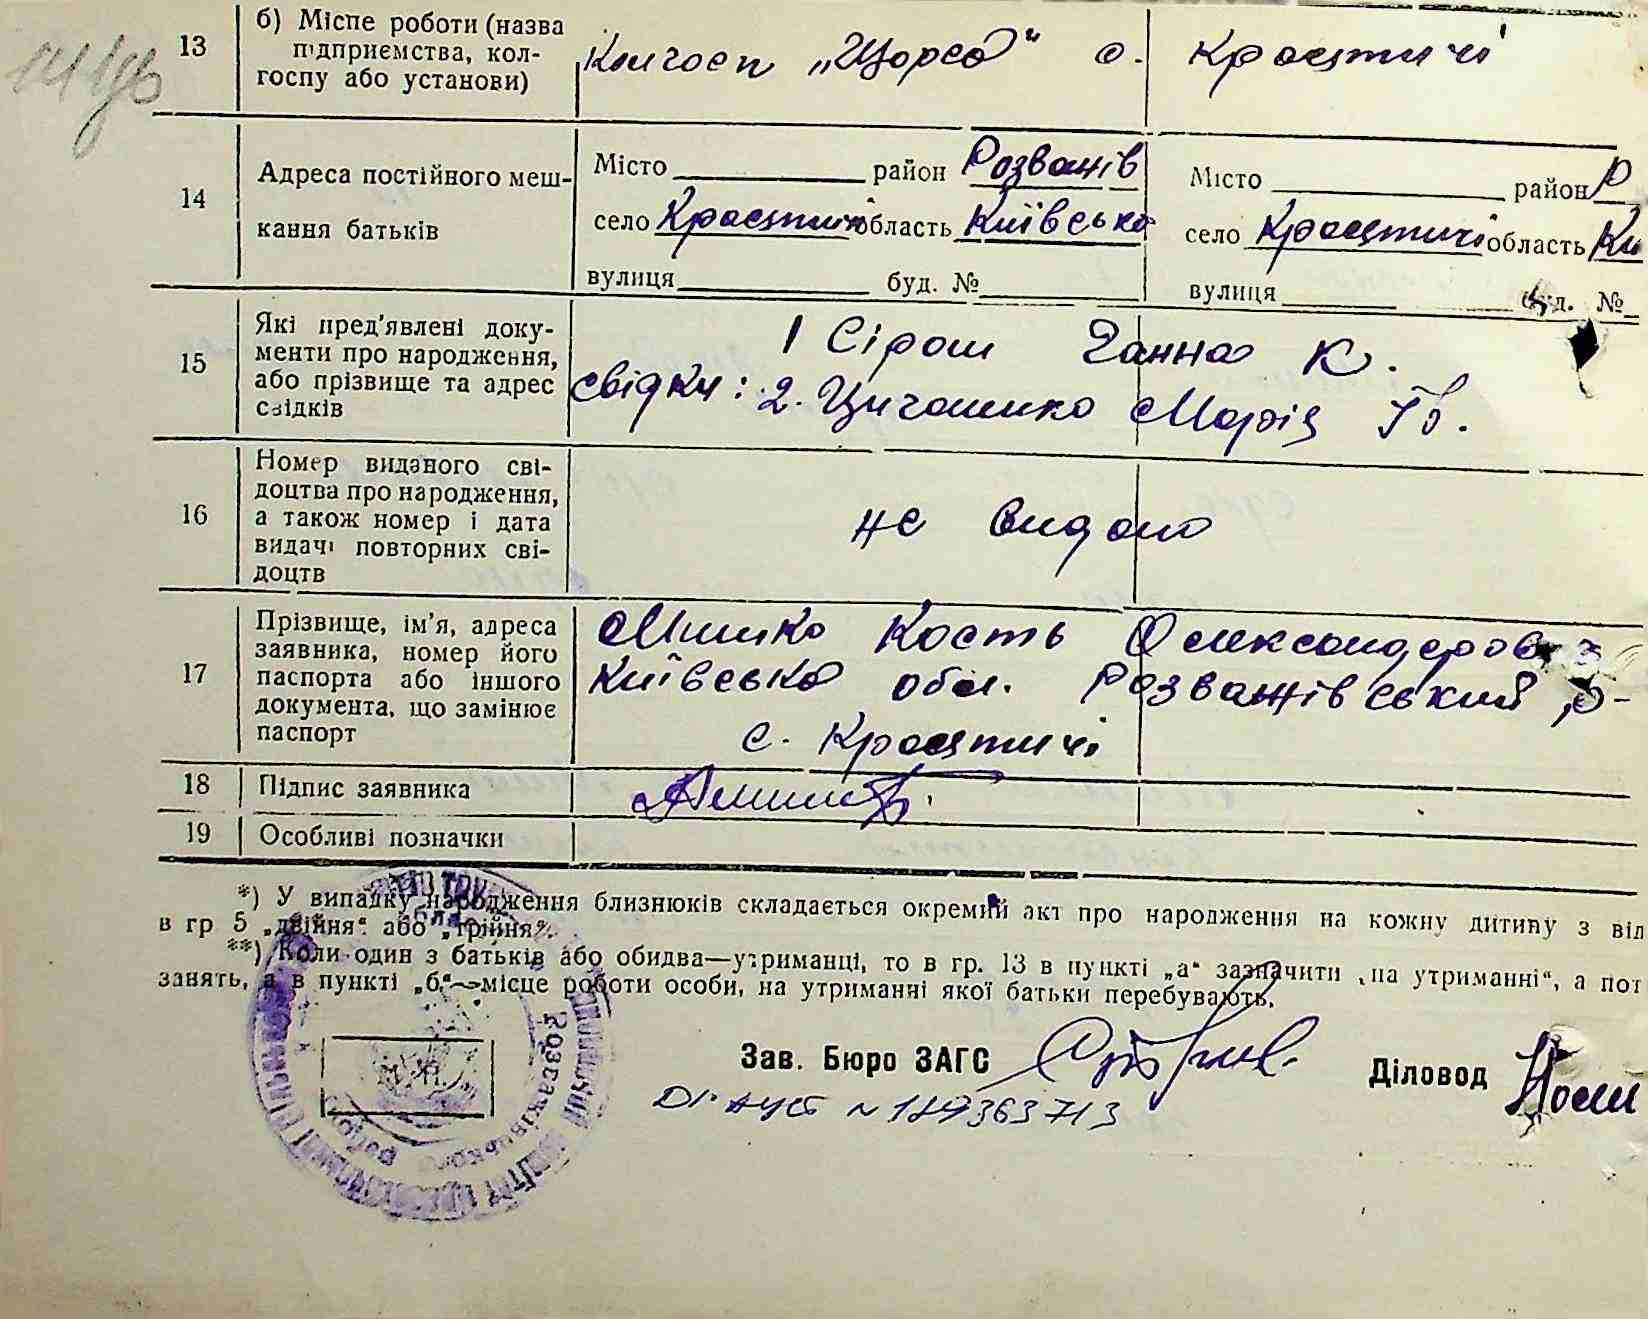 13
б) Місце роботи (назва
підприємства, кол-
госпу або установи)
Колгосп „Щорса“ с. Красятичі
14
Адреса постійного меш-
кання батьків
Місто район Розважів
село Красятичі область Київська
вулиця буд. №
Місто район Р
село Красятичі область Ки
вулиця буд. №
15
Які пред'явлені доку-
менти про народження,
або прізвище та адрес
свідків
1 Сірош Ганна К.
свідки: 2. Циганко Марія Ів.
16
Номер виданого сві-
доцтва про народження,
а також номер і дата
видачі повторних сві-
доцтв
не видано
17
Прізвище, ім'я, адреса
заявника, номер його
паспорта або іншого
документа, що замінює
паспорт
Мишко Кость Олександров
Київська обл. Розважівський р-
с. Красятичі
18
Підпис заявника
19
Особливі позначки
*) У випадку народження близнюків складається окремий акт про народження на кожну дитину з від
в гр 5 „двійня“ або „трійня“.
**) Коли один з батьків або обидва—утриманці, то в гр. 13 в пункті „а“ зазначити „на утриманні“, а пот
занять, а в пункті „б“—місце роботи особи, на утриманні якої батьки перебувають.
Зав. Бюро ЗАГС
Діловод
№ 189363713
Розважівського району